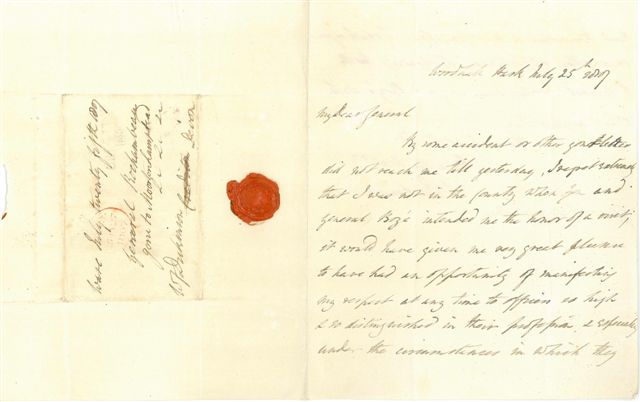 July 25th 1807
My dear General
By some accident or other your letter
did not reach me till yesterday, I regret extremely
that I was not in the County when you and
general Boyé intended me the honor of a visit;
it would have given me very great pleasure
to have had an opportunity of manifesting
my respect at any time to officers so high
& so distinguished in their profession, & especially
under the circumstances in which they
July twenty 1807
General Rochambeau
Moretonhampstead
Devon